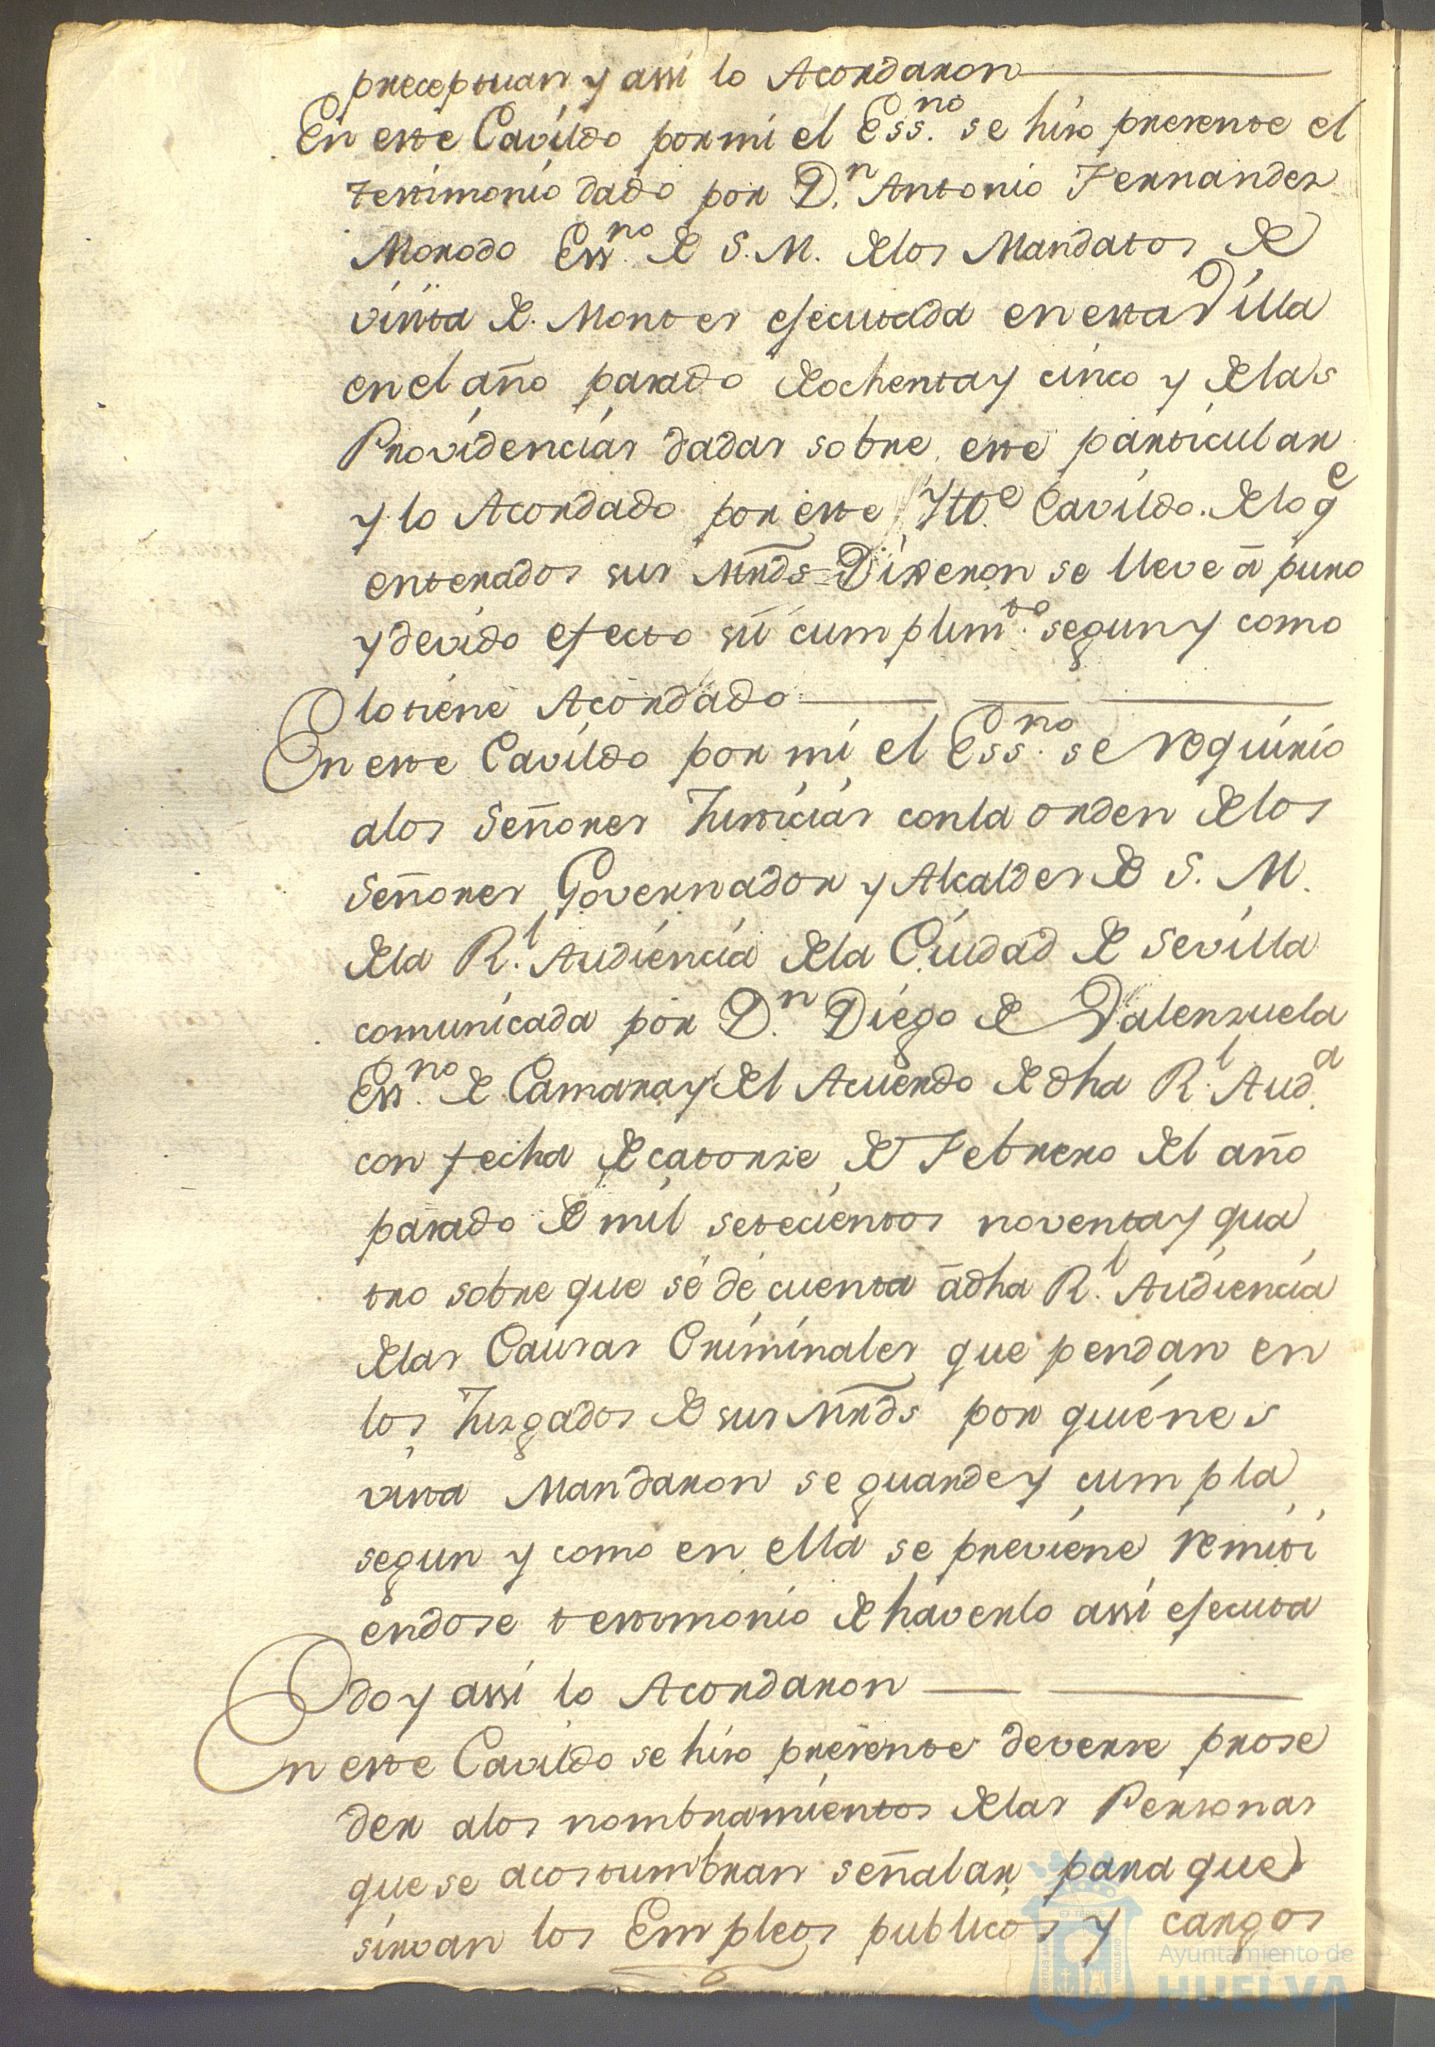 preceptuan y assi lo Acordaron
En este Cavildo por mi el Ess.no se hizo presente el
testimonio dado por D.n Antonio Fernandez
Morodo Ess.no de S. M. de los Mandatos de
visita de Montes ejecutada en esta Villa
en el año pasado de ochenta y cinco y de las
Providencias dadas sobre este particular
y lo Acordado por este Ytt.e Cavildo. de lo qe
enterados sus Mrds Dixeron se lleve â puro
y devido efecto su cumplim.to segun y como
lo tiene Acordado
En este Cavildo por mi el Ess.no se requirio
a los Señores Justicias con la orden de los
Señores Governador y Alcaldes de S. M.
de la R.l Audiencia de la Ciudad de Sevilla
comunicada por D.n Diego de Valenzuela
Ess.no de Camara y del Acuerdo de dha R.l Aud.a
con fecha de catorze de Febrero del año
pasado de mil setecientos noventa y qua
tro sobre que se dé cuenta â dha R.l Audiencia
de las Causas Criminales que pendan en
los Juzgados de sus Mrds por quienes
vista Mandaron se guarde y cumpla
segun y como en ella se previene remiti
endose testimonio de haverlo assi ejecuta
do y assi lo Acordaron
En este Cavildo se hizo presente deverse prose
der a los nombramientos de las Personas
que se acostumbran señalar para que
sirvan los Empleos publicos y cargos
Ayuntamiento de
HUELVA